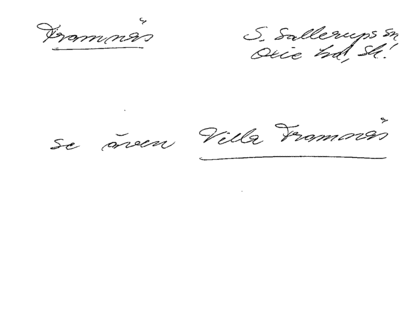 Framnäs
S. Sallerups sn
Oxie hd, Sk.
se även Villa Framnäs